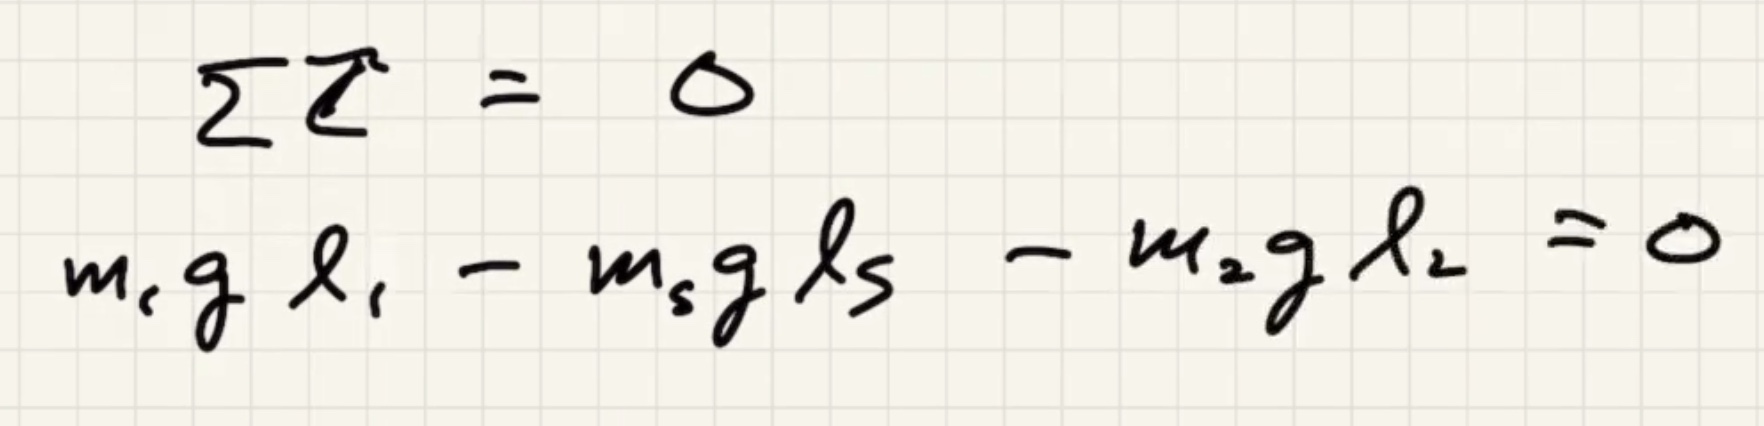 Στ = 0
m₁gl₁ - mₛglₛ - m₂gl₂ = 0